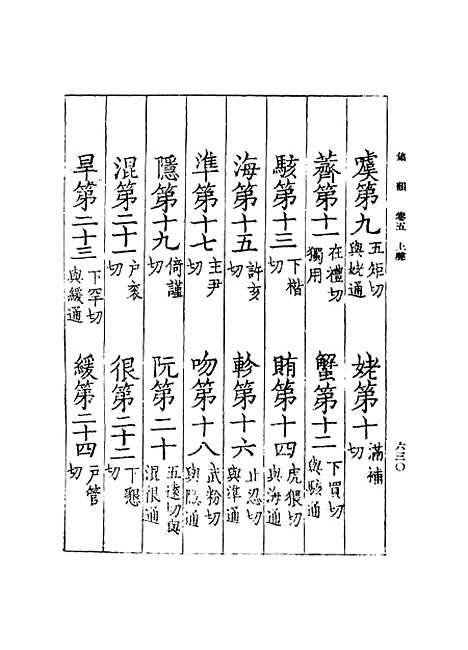 集韻 卷五 上聲
六三〇
噳第九 五矩切與姥通 姥第十 滿補切
薺第十一 在禮切獨用 蟹第十二 下買切與駭通
駭第十三 下楷切 賄第十四 虎猥切與海通
海第十五 許亥切 軫第十六 止忍切與準通
準第十七 主尹切 吻第十八 武粉切與隱通
隱第十九 倚謹切 阮第二十 五遠切與混很通
混第二十一 戶袞切 很第二十二 下懇切
旱第二十三 下罕切與緩通 緩第二十四 戶管切